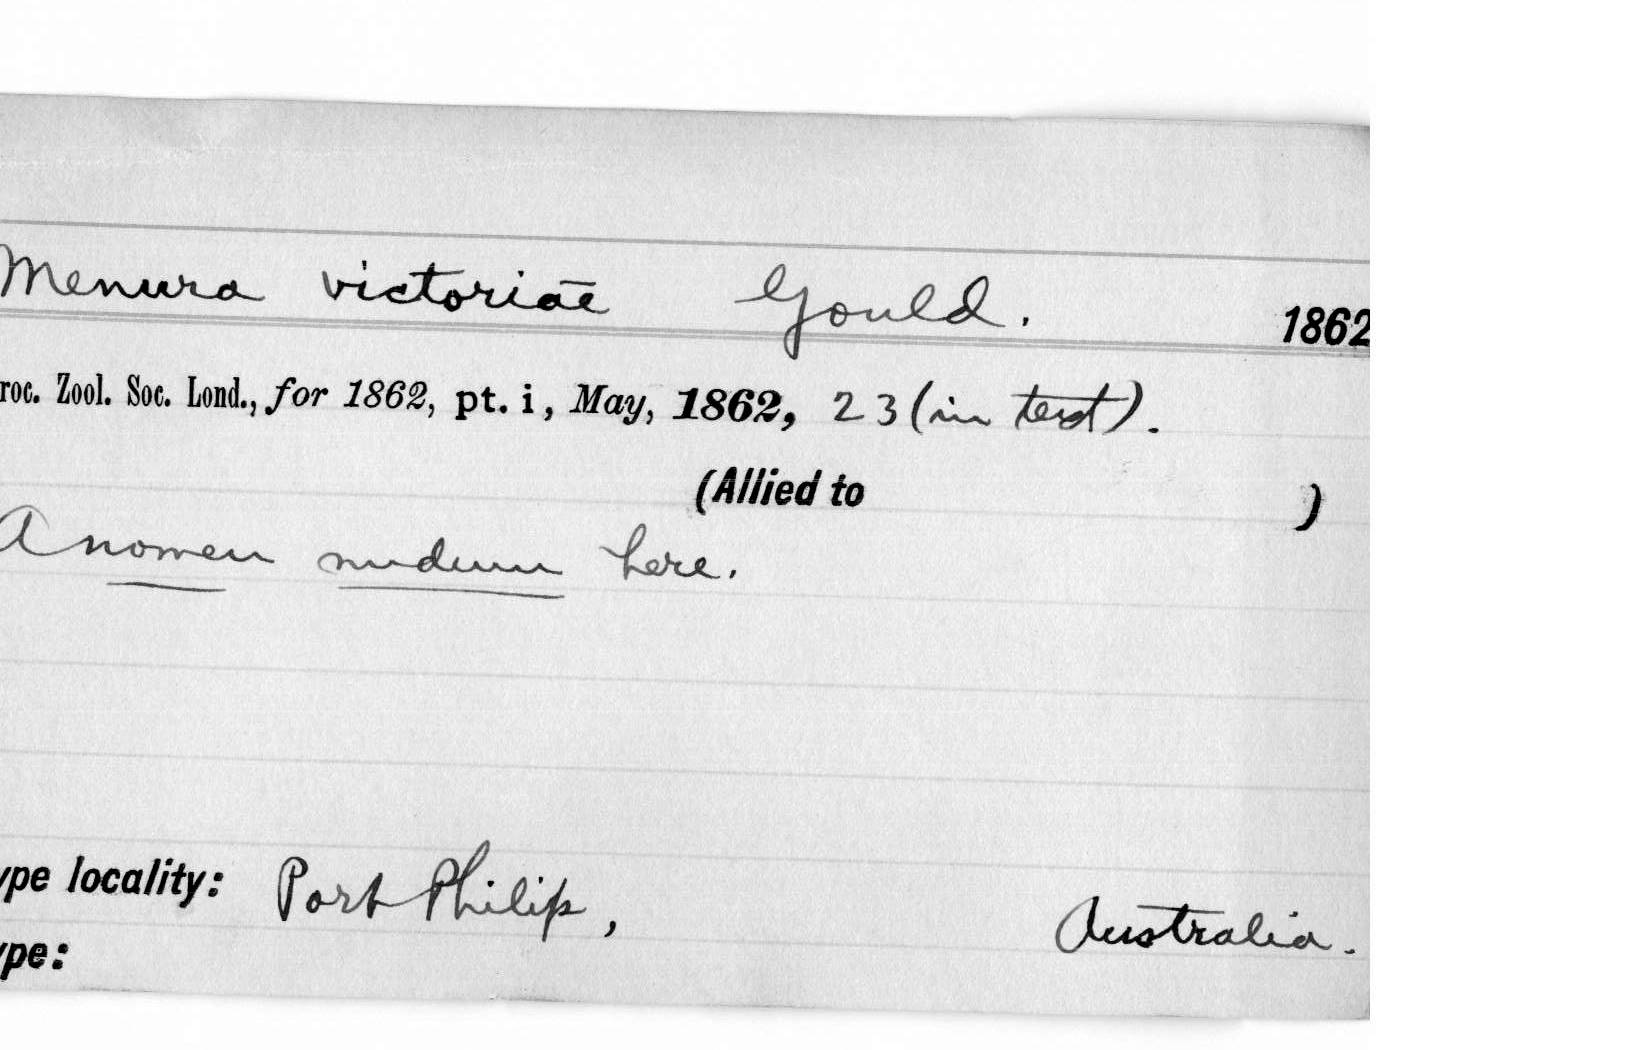 Menura victoriae Gould. 1862
roc. Zool. Soc. Lond., for 1862, pt. i, May, 1862, 23 (in text).
(Allied to )
A nomen nudum here.
ype locality: Port Philip, Australia.
ype: